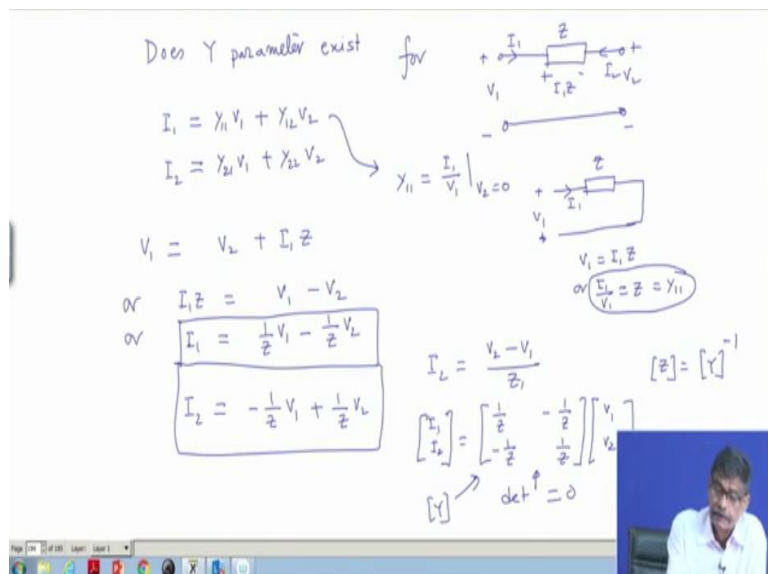 Does Y parameter exist for
+ I₁ Z I₂ +
V₁ + I₁Z - V₂
- -
I₁ = Y₁₁ V₁ + Y₁₂ V₂
I₂ = Y₂₁ V₁ + Y₂₂ V₂
Y₁₁ = I₁/V₁ | V₂=0
Z
+ I₁ +
V₁
V₁ = I₁ Z
or I₁/V₁ = Z = Y₁₁
V₁ = V₂ + I₁ Z
or I₁Z = V₁ - V₂
or I₁ = 1/Z V₁ - 1/Z V₂
I₂ = -1/Z V₁ + 1/Z V₂
I₂ = (V₂ - V₁)/Z₁
[Z] = [Y]⁻¹
[I₁ I₂] = [1/Z -1/Z -1/Z 1/Z] [V₁ V₂
[Y] det = 0
Page 194 of 195 Layer: Layer 1